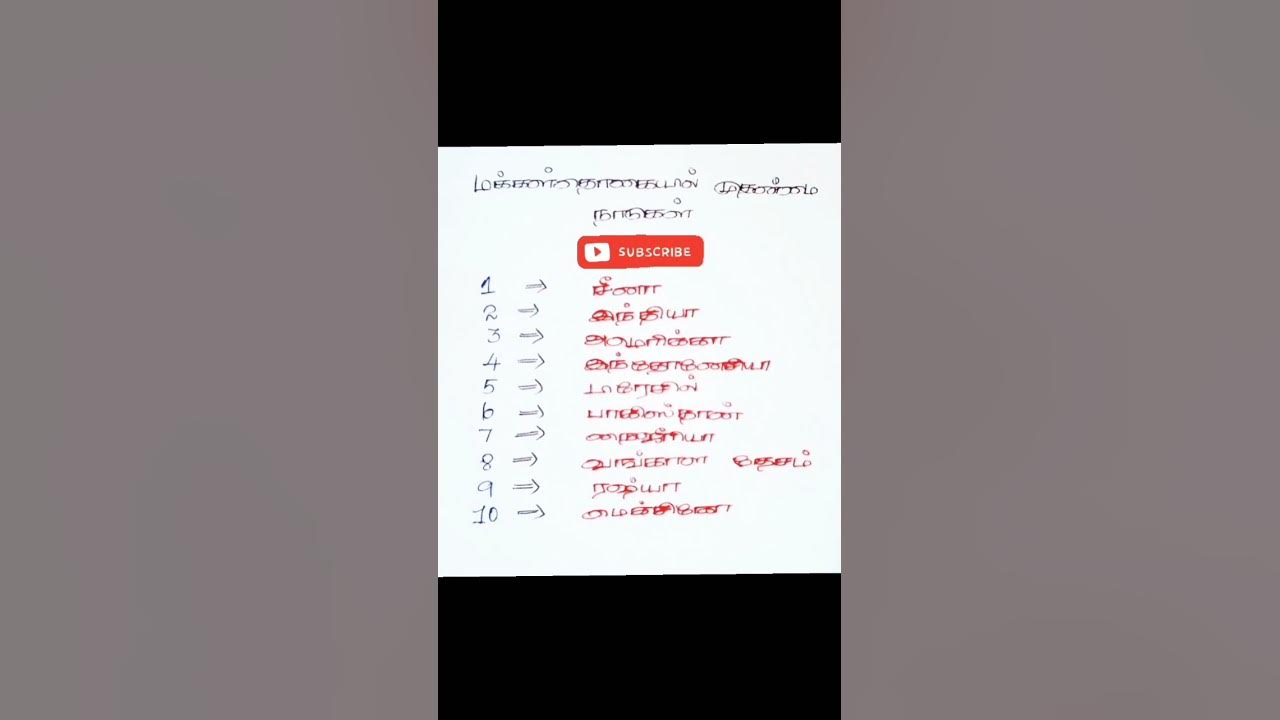 மக்கள்தொகையில் முதன்மை
நாடுகள்
SUBSCRIBE
1 ⇒ சீனா
2 ⇒ இந்தியா
3 ⇒ அமெரிக்கா
4 ⇒ இந்தோனேசியா
5 ⇒ பிரேசில்
6 ⇒ பாகிஸ்தான்
7 ⇒ நைஜீரியா
8 ⇒ வங்காள தேசம்
9 ⇒ ரஷ்யா
10 ⇒ மெக்சிகோ